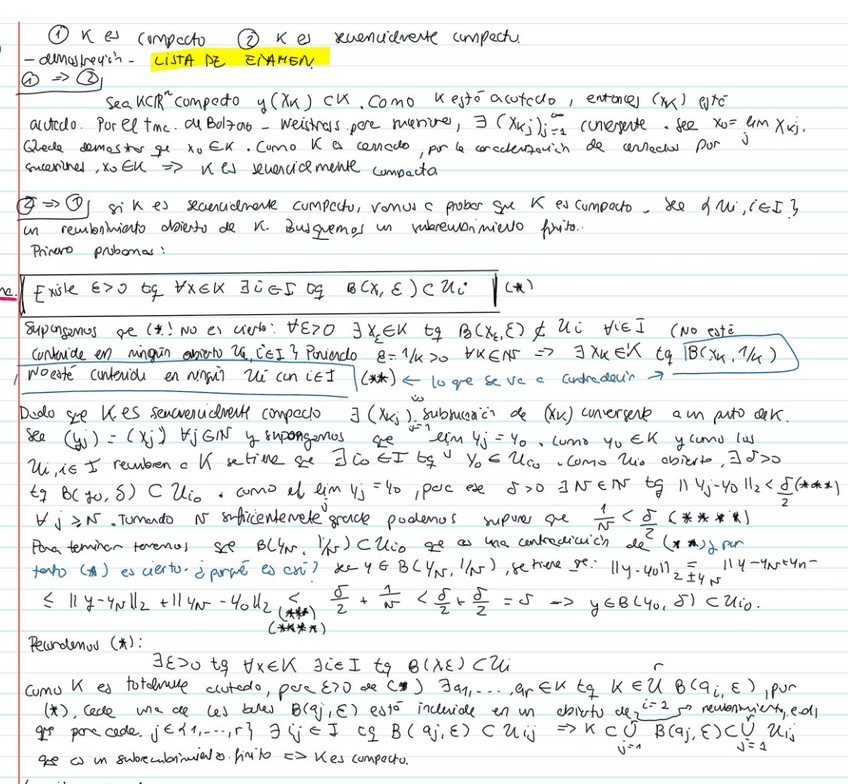 ① K es compacto ② K es secuencialmente compacto.
- demostración - LISTA DE EXAMEN.
① => ②
Sea K⊂ℝⁿ compacto y (x_K) ⊂K. Como K está acotado, entonces (x_K) está
acotado. Por el tma. de Bolzano - Weistrass para , ∃ (x_Kj)_{j=1}^∞ convergente. sea x₀ = lim_j x_Kj.
Queda demostrar que x₀∈K. Como K es cerrado, por la caracterización de cerrados por
sucesiones, x₀∈K => K es secuencialmente compacto
② => ① si K es secuencialmente compacto, vamos a probar que K es compacto. Sea {Ui, i∈I}
un recubrimiento abierto de K. Busquemos un subrecubrimiento finito.
Primero probamos:
Existe ε>0 tq ∀x∈K ∃i∈I tq B(x, ε)⊂Ui (*)
Supongamos que (*) No es cierto: ∀ε>0 ∃x_ε∈K tq B(x_ε, ε) ⊄ Ui ∀i∈I (No está
contenida en ningún abierto Ui, i∈I) Poniendo ε=1/k>0 ∀k∈ℕ => ∃x_K∈K tq B(x_K, 1/k)
No esté contenida en ningún Ui con i∈I (**) ← lo que se va a contradecir →
Dado que K es secuencialmente compacto ∃(x_Kj)_{j=1}^∞ subsucesión de (x_K) convergente a un punto de K.
sea (yj) = (xj) ∀j∈ℕ y supongamos que lim_j yj = y₀. como y₀∈K y como los
Ui, i∈I recubren a K se tiene que ∃i₀∈I tq y₀∈Ui₀. Como Ui₀ abierto, ∃δ>0
tq B(y₀, δ) ⊂ Ui₀. como el lim_j yj = y₀, para ese δ>0 ∃N∈ℕ tq ||yj-y₀||₂ < δ/2 (***)
∀j≥N. Tomando N suficientemente grande podemos suponer que 1/N < δ/2 (****)
Para terminar tenemos que B(y_N, 1/N) ⊂ Ui₀ que es una contradicción de (**) y por
tanto (*) es cierto. ¿porqué es así? sea y∈B(y_N, 1/N), se tiene que: ||y-y₀||₂ =_{±y_N} ||y-y_N+y_n-
≤ ||y-y_N||₂ + ||y_N-y₀||₂ <_{(***) (****)} δ/2 + 1/N < δ/2 + δ/2 = δ => y∈B(y₀, δ) ⊂ Ui₀.
Recordemos (*):
∃ε>0 tq ∀x∈K ∃i∈I tq B(x,ε)⊂Ui
Como K es totalmente acotado, para ε>0 de (*) ∃a₁,...,ar∈K tq K∈⋃_{i=2}^r B(ai, ε), por
(*), cada una de las bolas B(aj, ε) está incluida en un abierto del recubrimiento, e.d,
que para cada j∈{1,...,r} ∃ij∈I tq B(aj, ε)⊂Uij => K⊂⋃_{j=1}^r B(aj, ε)⊂⋃_{j=1}^r Uij
que es un subrecubrimiento finito => K es compacto.